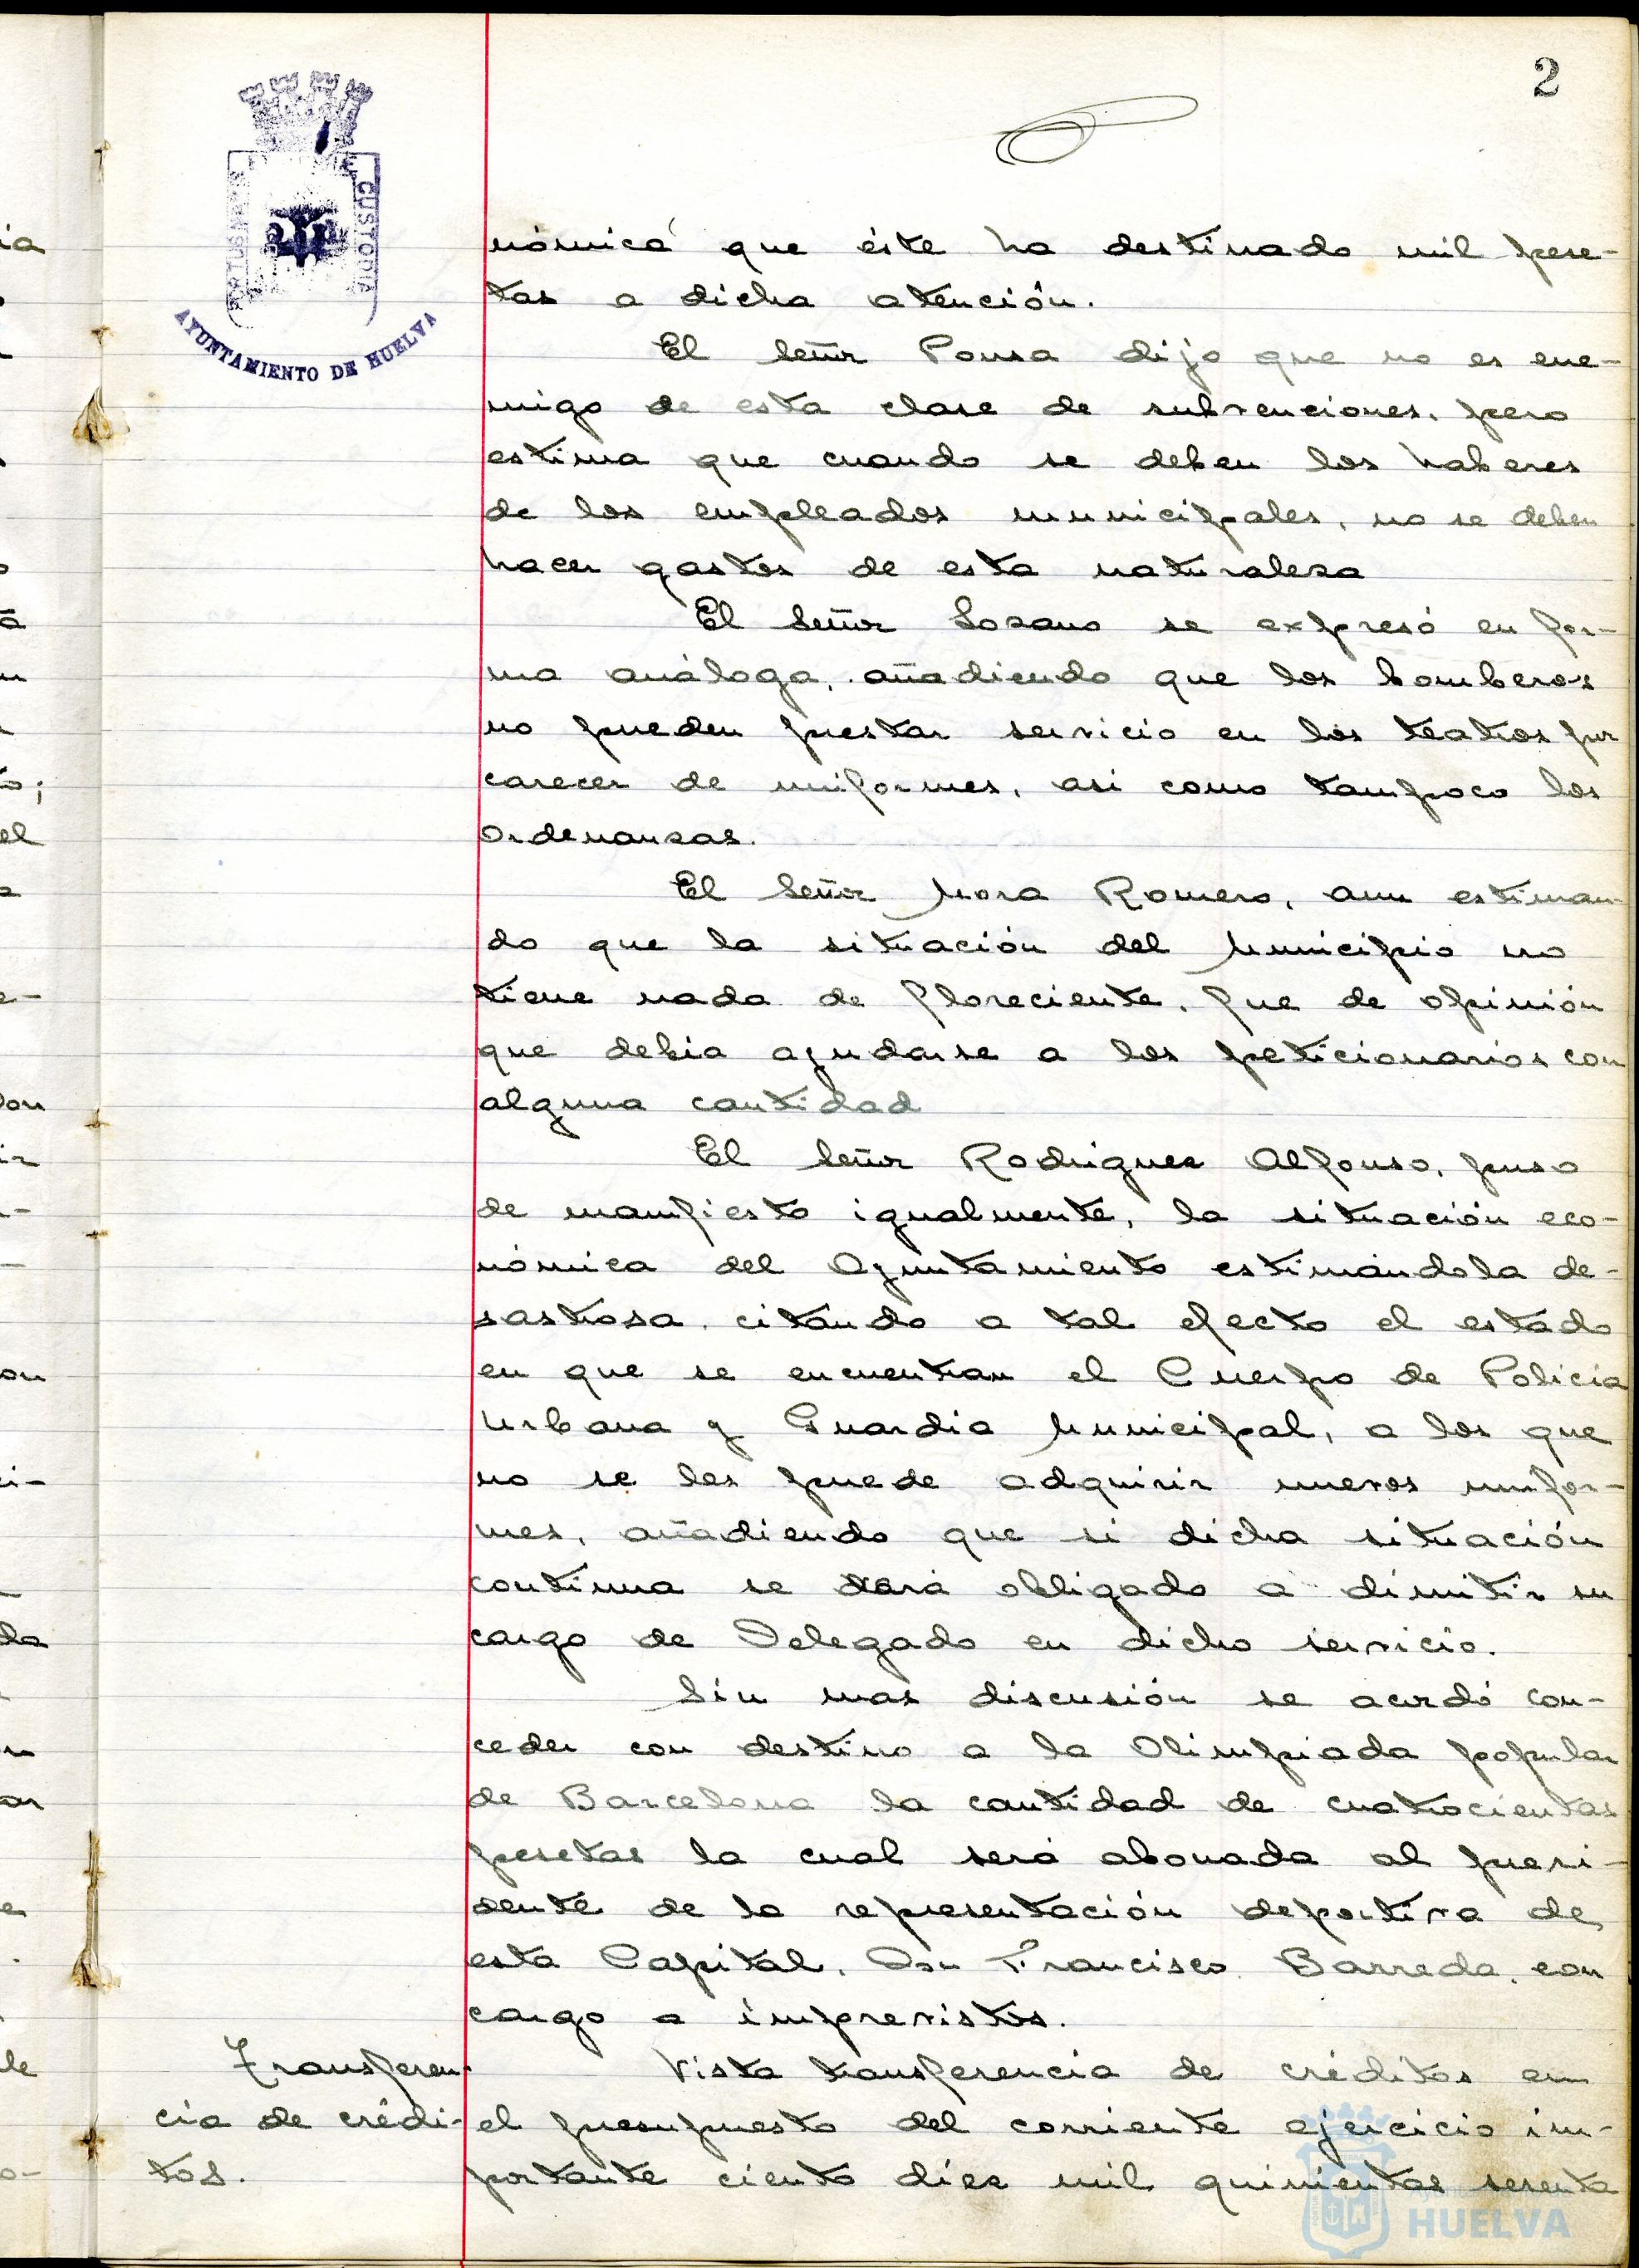 2
CUSTODIA
AYUNTAMIENTO DE HUELVA
nómica que éste ha destinado mil pese-
tas a dicha atención.
El Señor Ponsa dijo que no es ene-
migo de esta clase de subvenciones, pero
estima que cuando se deben los haberes
de los empleados municipales, no se deben
hacer gastos de esta naturaleza
El Señor Lozano se expresó en for-
ma análoga, añadiendo que los bomberos
no pueden prestar servicio en los teatros por
carecer de uniformes, asi como tampoco los
Ordenanzas.
El Señor Mora Romero, aun estiman-
do que la situación del Municipio no
tiene nada de floreciente, fue de opinión
que debia ayudarse a los peticionarios con
alguna cantidad
El Señor Rodriguez Alfonso, puso
de manifiesto igualmente, la situación eco-
nómica del Ayuntamiento estimándola de-
sastrosa, citando a tal efecto el estado
en que se encuentran el Cuerpo de Policia
Urbana y Guardia Municipal, a los que
no se les puede adquirir nuevos unifor-
mes, añadiendo que si dicha situación
continua se verá obligado a dimitir su
cargo de Delegado en dicho servicio.
Sin mas discusión se acordó con-
ceder con destino a la Olimpiada popular
de Barcelona la cantidad de cuatrocientas
pesetas la cual será abonada al presi-
dente de la representación deportiva de
esta Capital, Don Francisco Barreda, con
cargo a imprevistos.
Transferen-
cia de crédi-
tos.
Vista transferencia de créditos en
el presupuesto del corriente ejercicio im-
portante ciento diez mil quinientas sesenta
HUELVA